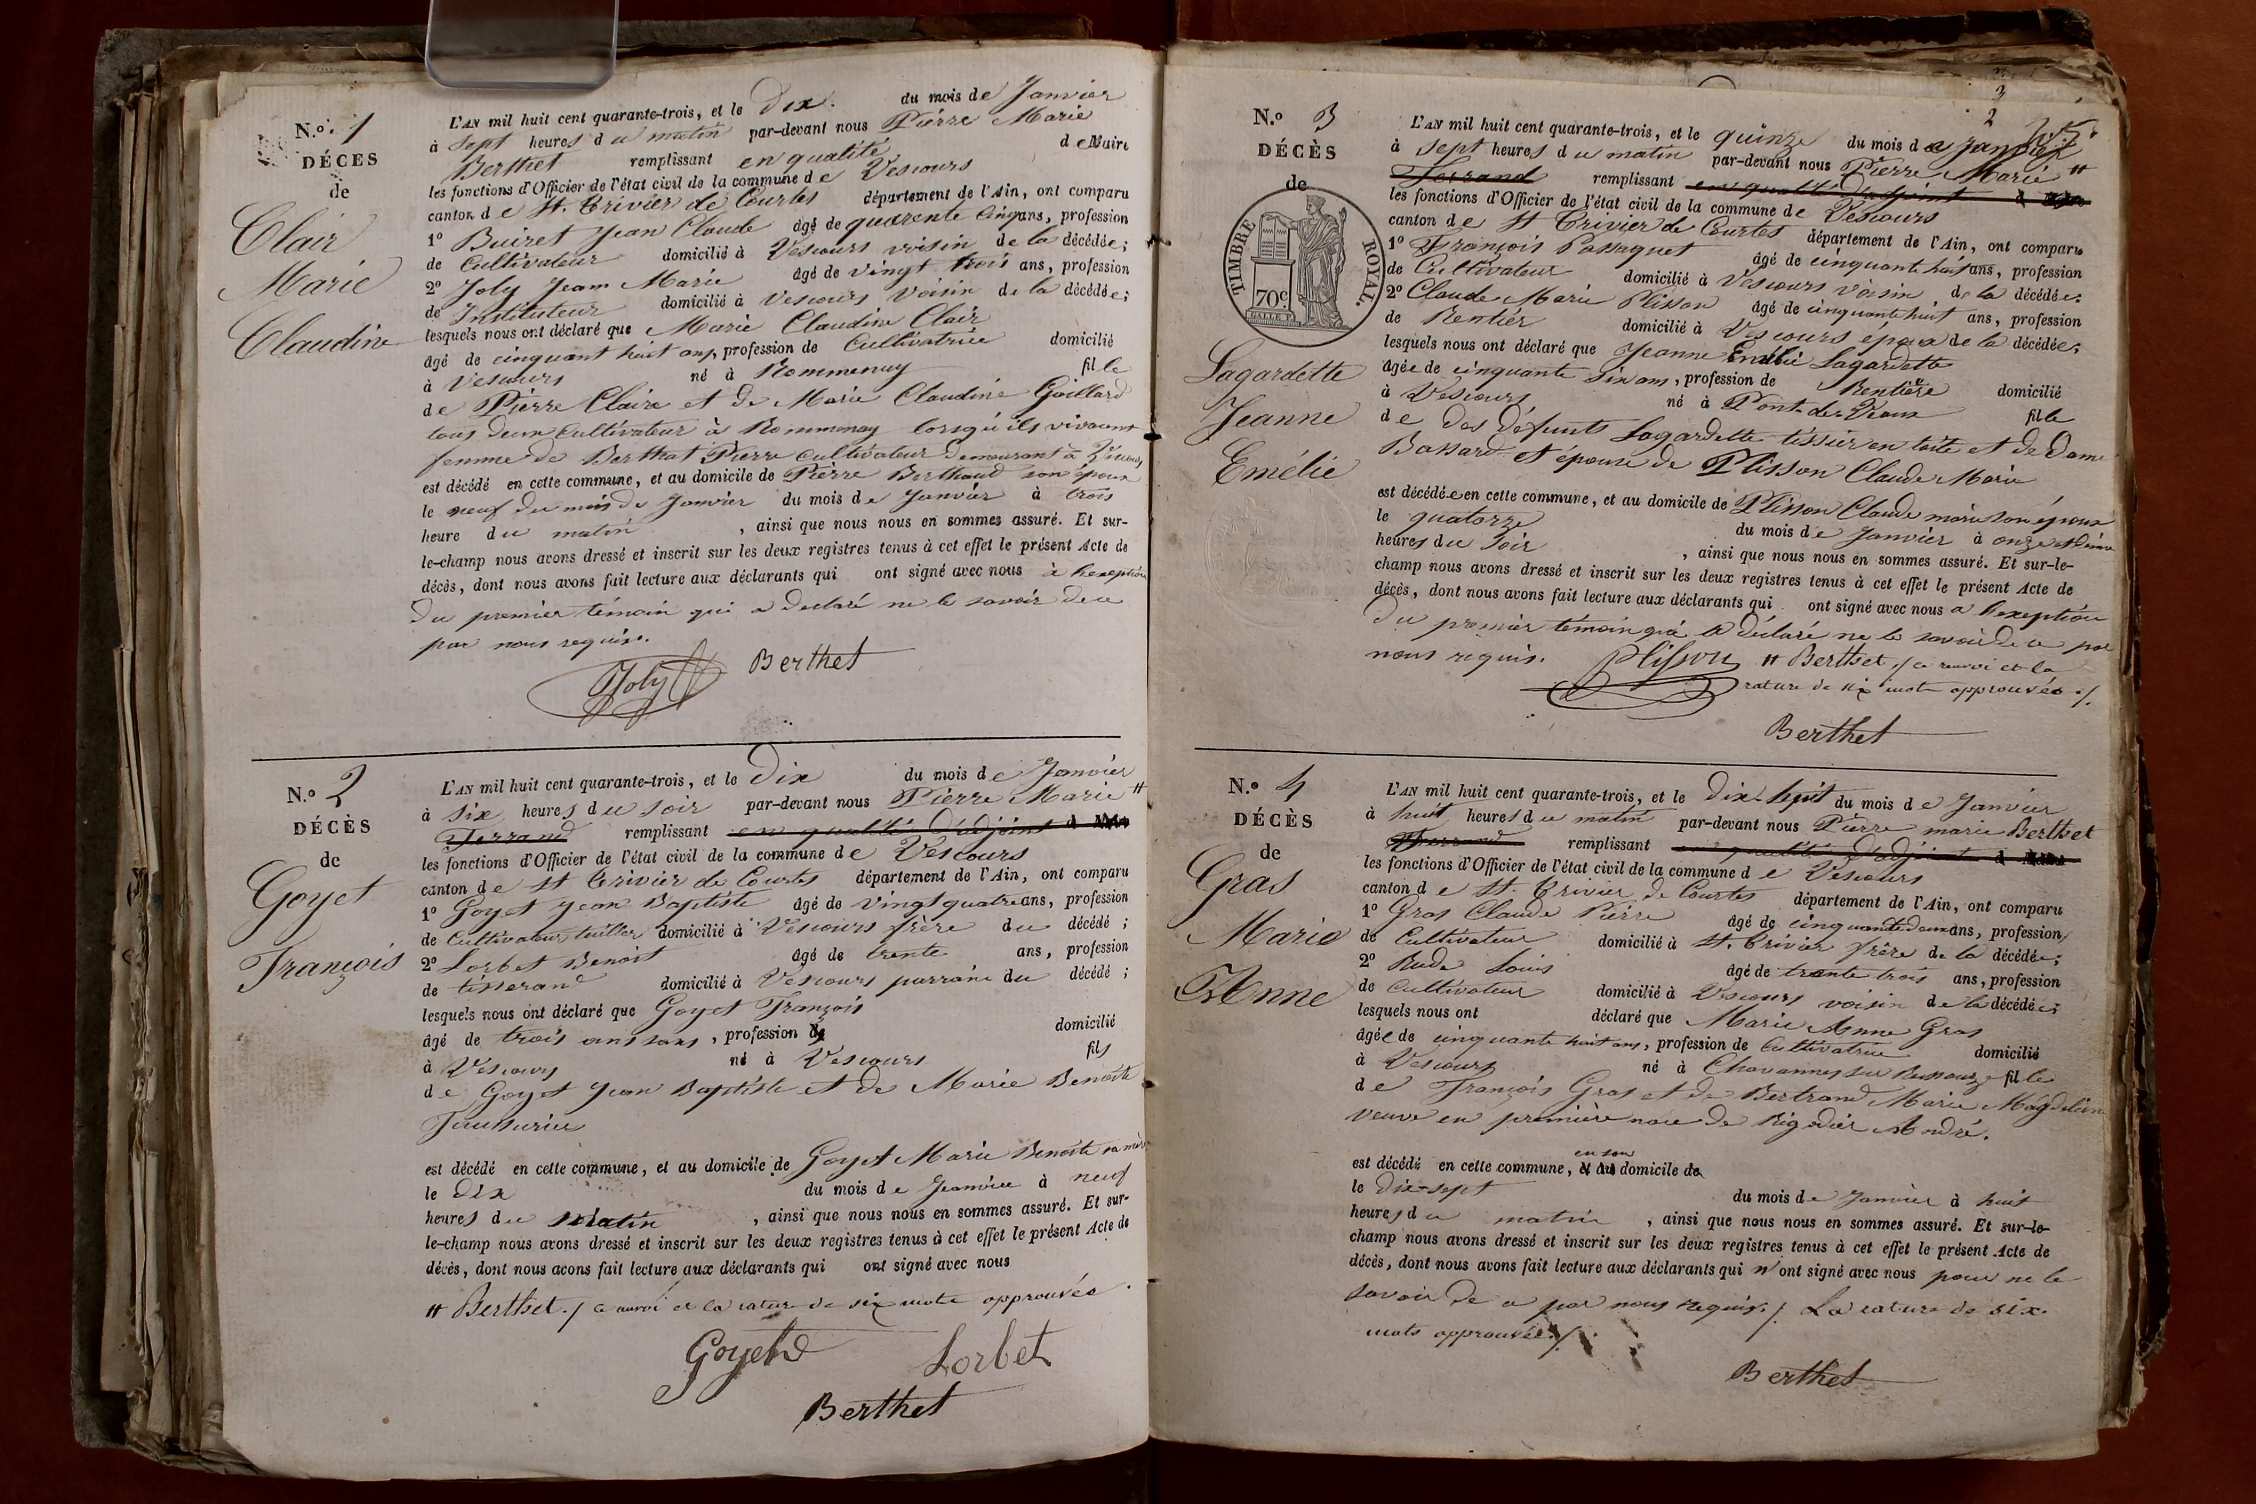 N.o 1
DÉCES
de
Clair
Marie
Claudine
L'AN mil huit cent quarante-trois, et le Dix. du mois de Janvier
à sept heures du matin par-devant nous Pierre Marie
Berthet remplissant en qualité de Maire
les fonctions d'Officier de l'état civil de la commune de Vescours
canton de St. Trivier de Courtes département de l'Ain, ont comparu
1o Buiret Jean Claude âgé de quarente cinq ans, profession
de Cultivateur domicilié à Vescours voisin de la décédée;
2o Joly Jean Marie âgé de vingt trois ans, profession
de Instituteur domicilié à Vescours voisin de la décédée;
lesquels nous ont déclaré que Marie Claudine Clair
âgé de cinquant huit ans, profession de Cultivatrice domicilié
à Vescours né à Rommenay fille
de Pierre Claire et de Marie Claudine Gaillard
tous deux Cultivateur à Rommenay lorsqu'ils vivaient
femme de Berthat Pierre cultivateur demeurant à Vescours
est décédé en cette commune, et au domicile de Pierre Berthaud son époux
le neuf du mois de Janvier du mois de Janvier à trois
heure du matin , ainsi que nous nous en sommes assuré. Et sur-
le-champ nous avons dressé et inscrit sur les deux registres tenus à cet effet le présent Acte de
décès, dont nous avons fait lecture aux déclarants qui ont signé avec nous à l'exeption
du premier témoin qui a declaré ne le savoir de ce
par nous requis.
Joly Berthet
N.o 2
DÉCÈS
de
Goyet
François
L'AN mil huit cent quarante-trois, et le Dix du mois de Janvier
à six heures du soir par-devant nous Pierre Marie #
Ferrand remplissant en qualité d'adjoint d
les fonctions d'Officier de l'état civil de la commune de Vescours
canton de St Trivier de Courtes département de l'Ain, ont comparu
1o Goyet Jean Baptiste âgé de vingt quatre ans, profession
de Cultivateur tuillier domicilié à Vescours frère du décédé;
2o Lorbet Benoit âgé de trente ans, profession
de tisserand domicilié à Vescours parrain du décédé;
lesquels nous ont déclaré que Goyet François
âgé de trois ans sans, profession de domicilié
à Vescours né à Vescours fils
de Goyet Jean Baptiste et de Marie Benoite
est décédé en cette commune, et au domicile de Goyet Marie Benoite sa mère
le dix du mois de Janvier à neuf
heures du matin , ainsi que nous nous en sommes assuré. Et sur-
le-champ nous avons dressé et inscrit sur les deux registres tenus à cet effet le présent Acte de
décès, dont nous avons fait lecture aux déclarants qui ont signé avec nous
# Berthet./ ce renvoi et la rature de six mots approuvés.
Goyet Lorbet
Berthet
3
2
N.o 3
DÉCÈS
de
TIMBRE ROYAL.
70c.
Lagardette
Jeanne
Emélie
L'AN mil huit cent quarante-trois, et le quinze du mois de Janvier
à sept heures du matin par-devant nous Pierre Marie #
Ferrand remplissant en qualité d'adjoint d
les fonctions d'Officier de l'état civil de la commune de Vescours
canton de St Trivier de Courtes département de l'Ain, ont comparu
1o François Passaquet âgé de cinquante huit ans, profession
de Cultivateur domicilié à Vescours voisin de la décédée;
2o Claude Marie Plisson âgé de cinquante huit ans, profession
de Rentier domicilié à Vescours époux de la décédée;
lesquels nous ont déclaré que Jeanne Emélie Lagardette
âgée de cinquante six ans, profession de Rentière domicilié
à Vescours né à Pont de Vaux fille
de des défunts Lagardette tissier en toite et de Dame
Bassard et épouse de Plisson Claude Marie
est décédée en cette commune, et au domicile de Plisson Claude marie son époux
le quatorze du mois de Janvier à onze et demie
heures du soir , ainsi que nous nous en sommes assuré. Et sur-le-
champ nous avons dressé et inscrit sur les deux registres tenus à cet effet le présent Acte de
décès, dont nous avons fait lecture aux déclarants qui ont signé avec nous a l'exeption
du premier témoin qui a déclaré ne le savoir de ce par
nous requis. Plisson # Berthet./ ce renvoi et la
rature de six mots approuvés./.
Berthet
N.o 4
DÉCÈS
de
Gras
Marie
Anne
L'AN mil huit cent quarante-trois, et le Dix-huit du mois de Janvier
à huit heures du matin par-devant nous Pierre marie Berthet
Ferrand remplissant en qualité d'adjoint d
les fonctions d'Officier de l'état civil de la commune de Vescours
canton de St. Trivier de Courtes département de l'Ain, ont comparu
1o Gras Claude Pierre âgé de cinquante deux ans, profession
de Cultivateur domicilié à St. Trivier frère de la décédée;
2o Rude Louis âgé de trente trois ans, profession
de Cultivateur domicilié à Vescours voisin de la décédée;
lesquels nous ont déclaré que Marie Anne Gras
âgée de cinquante huit ans, profession de Cultivatrice domicilié
à Vescours né à Chavannes sur Reyssouze fille
de François Gras et de Bertrand Marie Magdelène
veuve en première noce de Rigodier André.
est décédé en cette commune, en son domicile de
le dix-sept du mois de Janvier à huit
heures du matin , ainsi que nous nous en sommes assuré. Et sur-le-
champ nous avons dressé et inscrit sur les deux registres tenus à cet effet le présent Acte de
décès, dont nous avons fait lecture aux déclarants qui n'ont signé avec nous pour ne le
savoir de ce par nous requis./. La rature de six
mots approuvée./.
Berthet